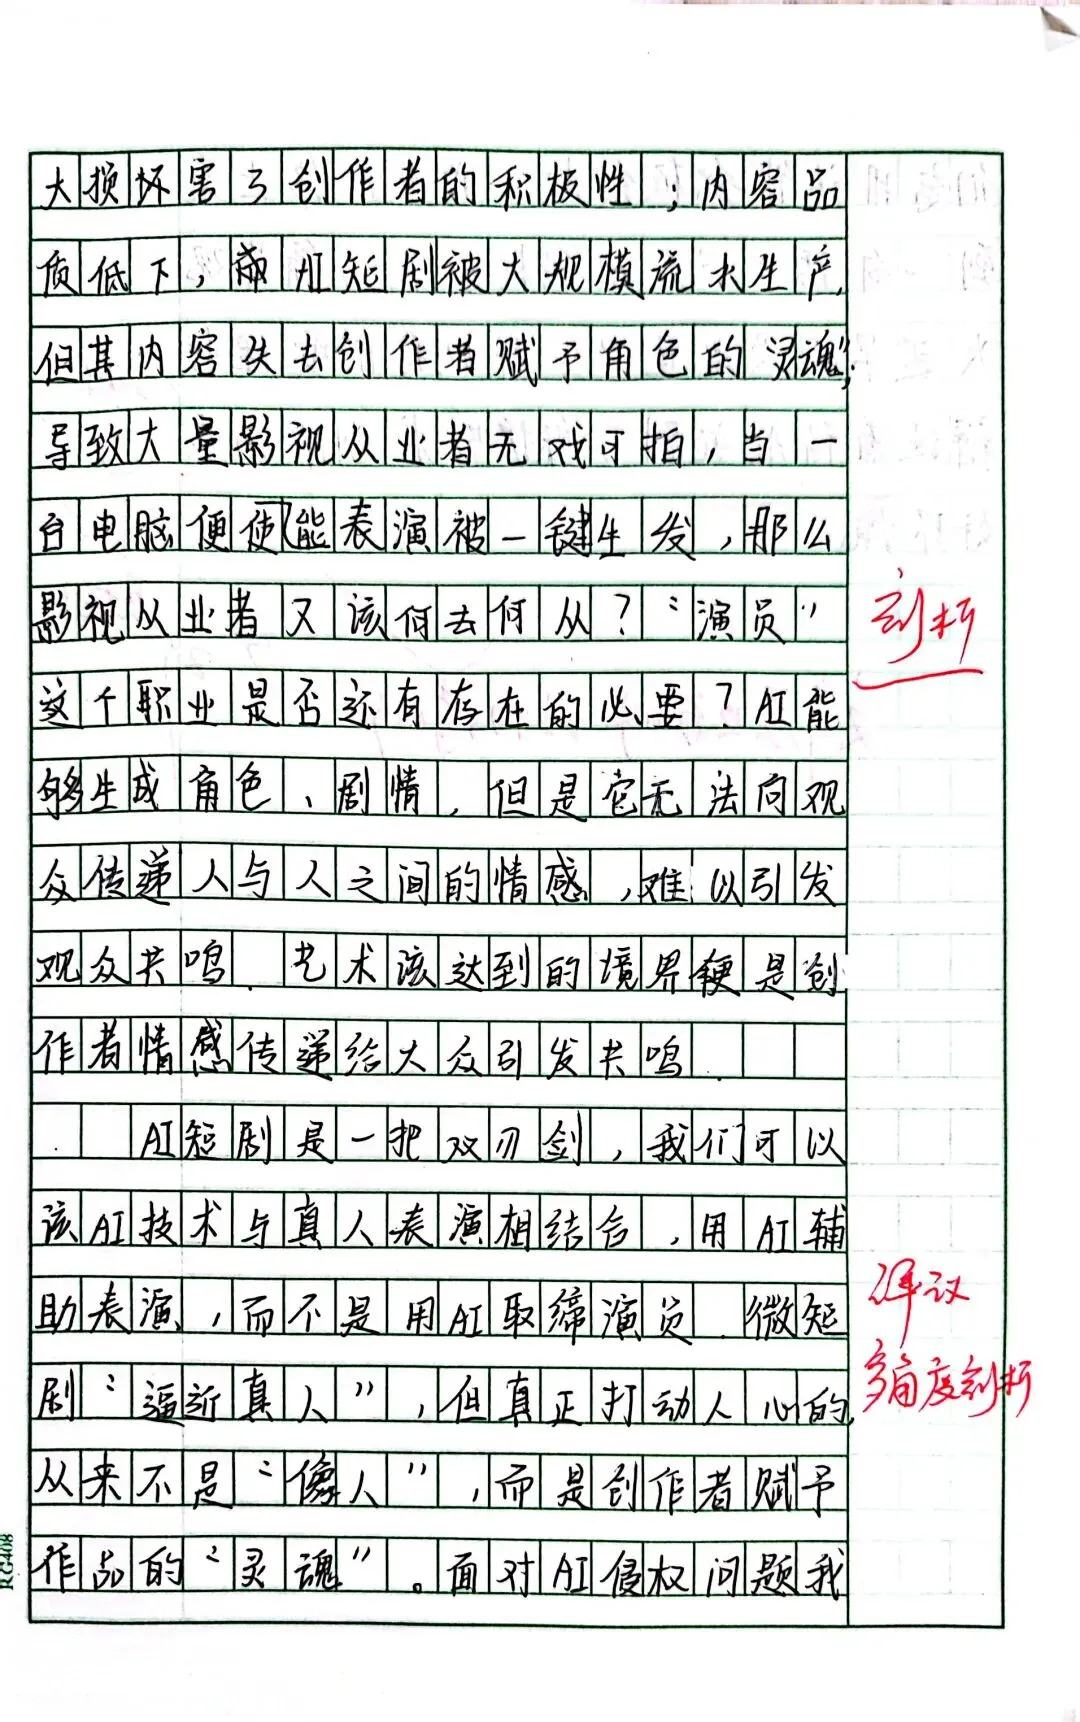 大损坏害了创作者的积极性；内容品
质低下，AI短剧被大规模流水生产，
但其内容失去创作者赋予角色的"灵魂"；
导致大量影视从业者无戏可拍，当一
台电脑便使能表演被一键生发，那么
影视从业者又该何去何从？"演员"
剖析
这个职业是否还有存在的必要？AI能
够生成角色、剧情，但是它无法向观
众传递人与人之间的情感，难以引发
观众共鸣．艺术该达到的境界便是创
作者情感传递给大众引发共鸣．
AI短剧是一把双刃剑，我们可以
该AI技术与真人表演相结合，用AI辅
助表演，而不是用AI取缔演员．微短
评议
剧"逼近真人"，但真正打动人心的，
多角度剖析
从来不是"像人"，而是创作者赋予
作品的"灵魂"。面对AI侵权问题我
RG408